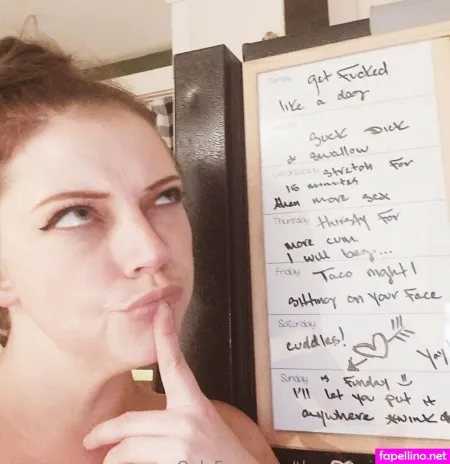 get Fucked
like a dog
Suck Dick
& swallow
Wednesday stretch For
15 minutes
then more sex
Thursday thirsty For
more cum
I will beg...
Friday Taco night!
sitting on your Face
Saturday
cuddles!
Yay!
Sunday is Funday
I'll let you put it
anywhere *wink
fapellino.net